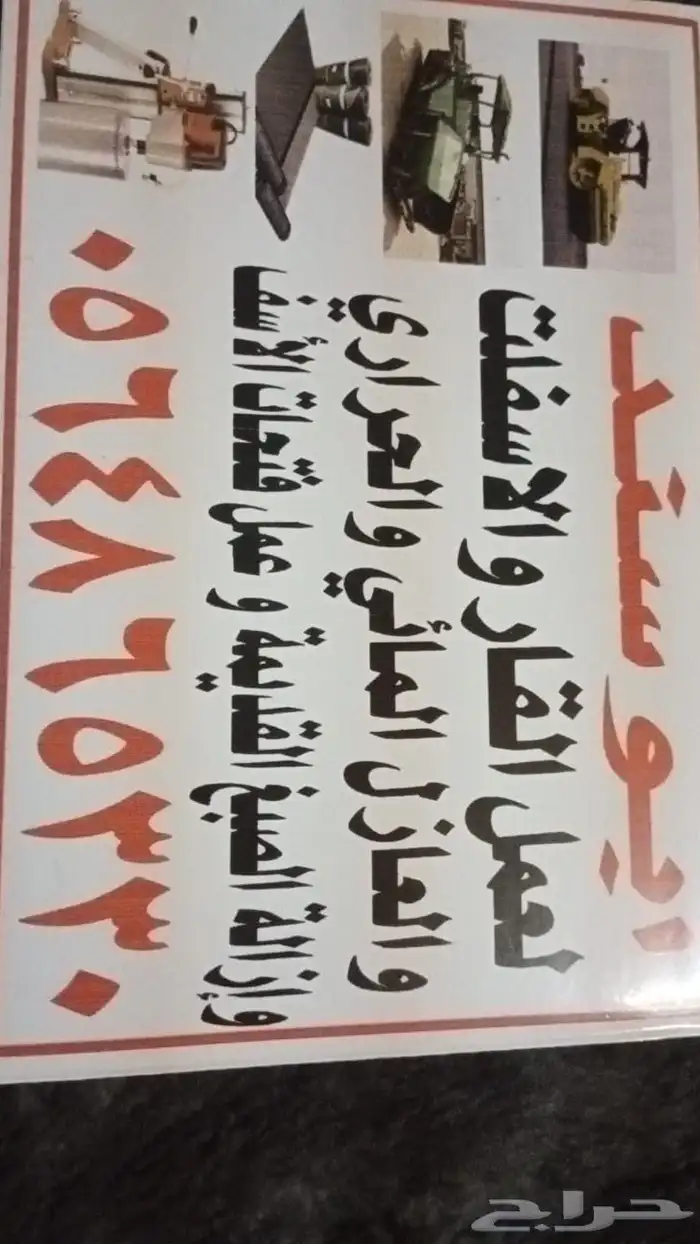 ابو سند
لعمل القار و الاسفلت
والعازل المائي والحراري
وإزالة الصبغ القديمة و عمل فتحات الأسف
٠٥٦٤٨٦٥٣٣٠
حراج